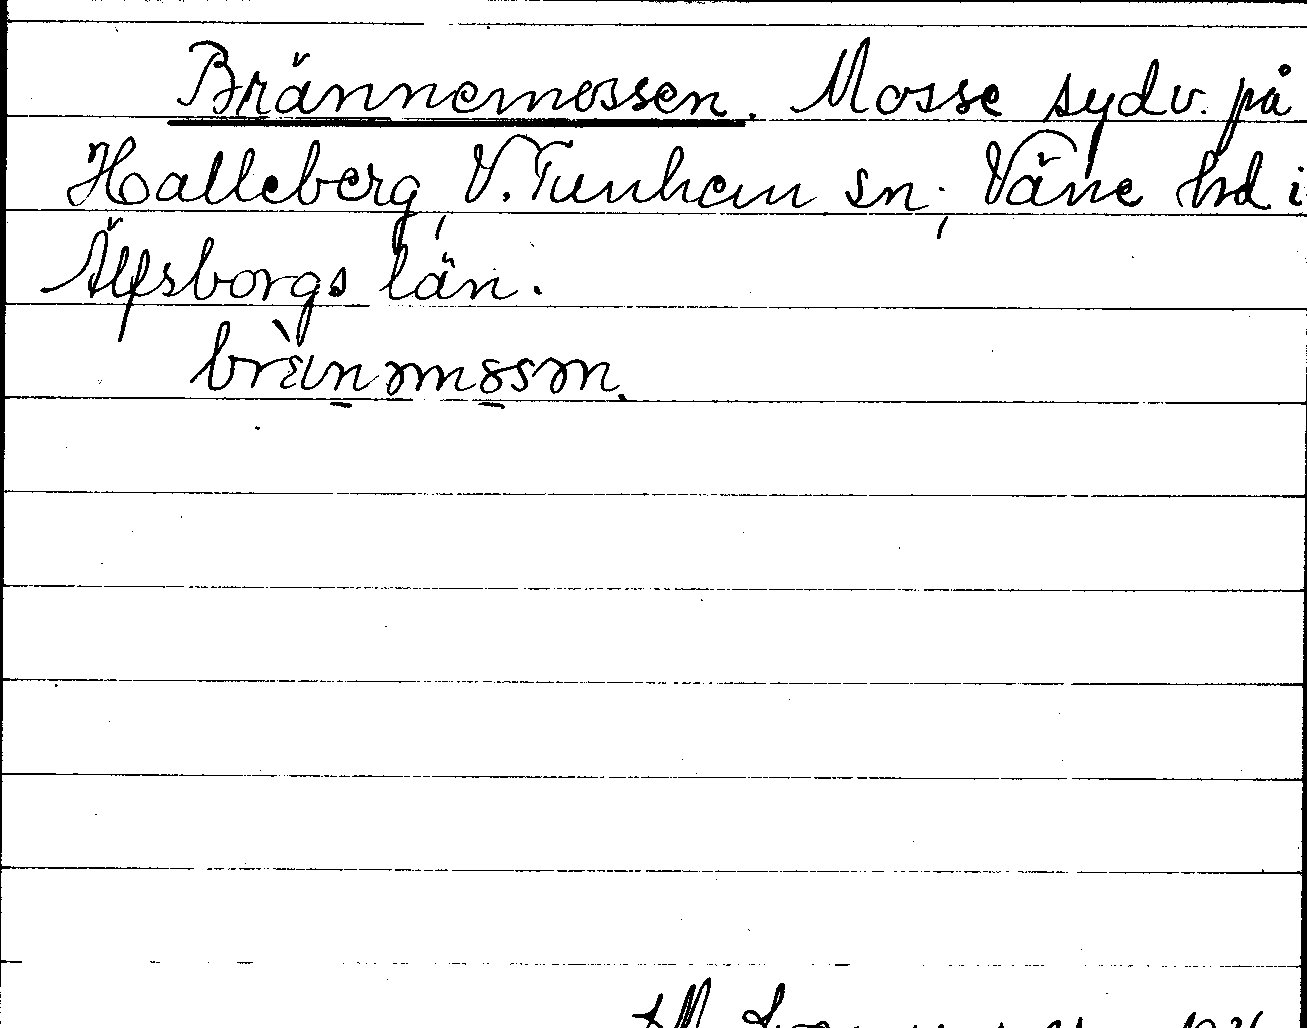 Brännemossen. Mosse sydv. på
Halleberg, V. Tunhem sn; Väne hd i
Älfsborgs län.